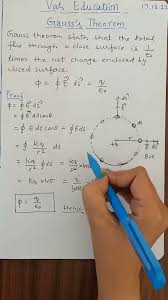 Vab Education
17.12.23
Gauss's Theorem
Gauss theorem states that the total
flux through a close surface is 1/ε₀
times the net charge enclosed by
closed surface.
φ = ∮ E⃗ ds⃗ = q/ε₀
Proof
φ = ∮ E⃗ ds⃗
= ∮ E ds cos θ = ∮ E ds
= ∮ kq/r² ds
= kq/r² ∮ ds = kq/r²
= kq × 4π =
φ = q/ε₀
Hence